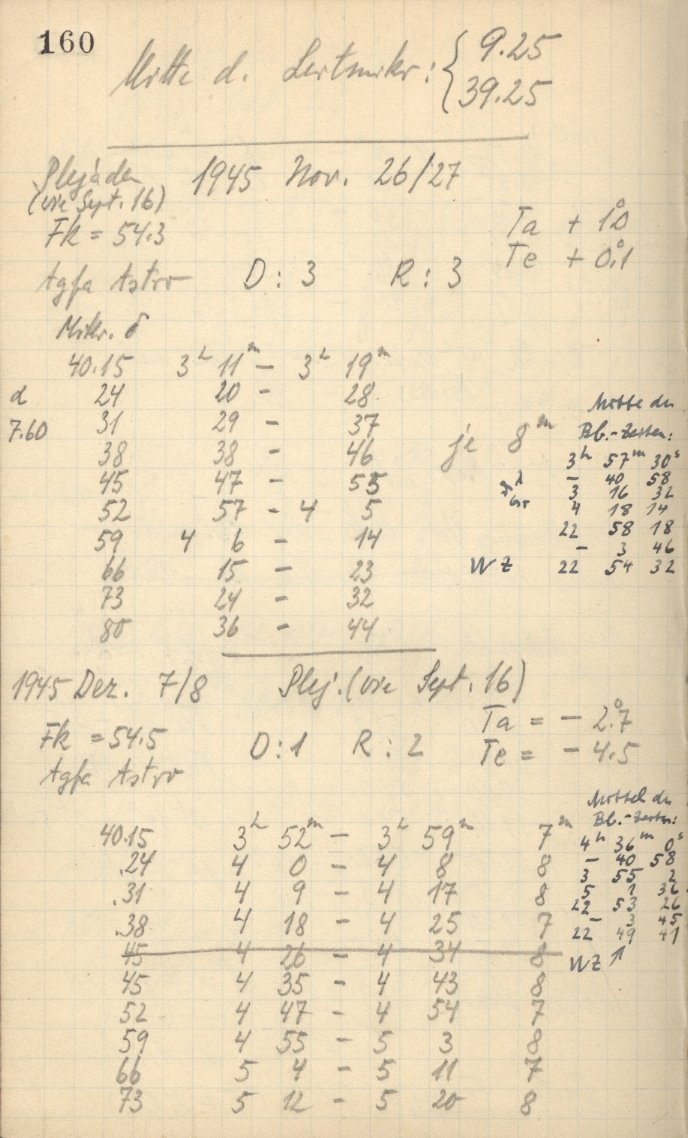 160
Mitte d. Leitmikr.: { 9.25
39.25
Plejaden 1945 Nov. 26/27
(wie Sept. 16)
Fk = 54.3
Ta + 1°.0
Te + 0°.1
Agfa Astro D: 3 R: 3
Mikr. δ
40.15 3h 11m – 3h 19m
24 20 – 28
31 29 – 37
38 38 – 46
45 47 – 55
52 57 – 4 5
59 4 6 – 14
66 15 – 23
73 24 – 32
80 36 – 44
d
7.60
je 8m
Mitte der
Bl.-Zeiten:
3h 57m 30s
– 40 58
3 16 32
4 18 14
22 58 18
– 3 46
WZ 22 54 32
1945 Dez. 7/8 Plej. (wie Sept. 16)
Fk = 54.5 D: 1 R: 2
Ta = – 2°.7
Te = – 4.5
Agfa Astro
40.15 3h 52m – 3h 59m 7m
.24 4 0 – 4 8 8
.31 4 9 – 4 17 8
.38 4 18 – 4 25 7
45 4 26 – 4 34 8
45 4 35 – 4 43 8
52 4 47 – 4 54 7
59 4 55 – 5 3 8
66 5 4 – 5 11 7
73 5 12 – 5 20 8
Mittel der
Bl.-Zeiten:
4h 36m 0s
– 40 58
3 55 2
5 1 36
22 53 26
– 3 45
22 49 41
WZ ↑